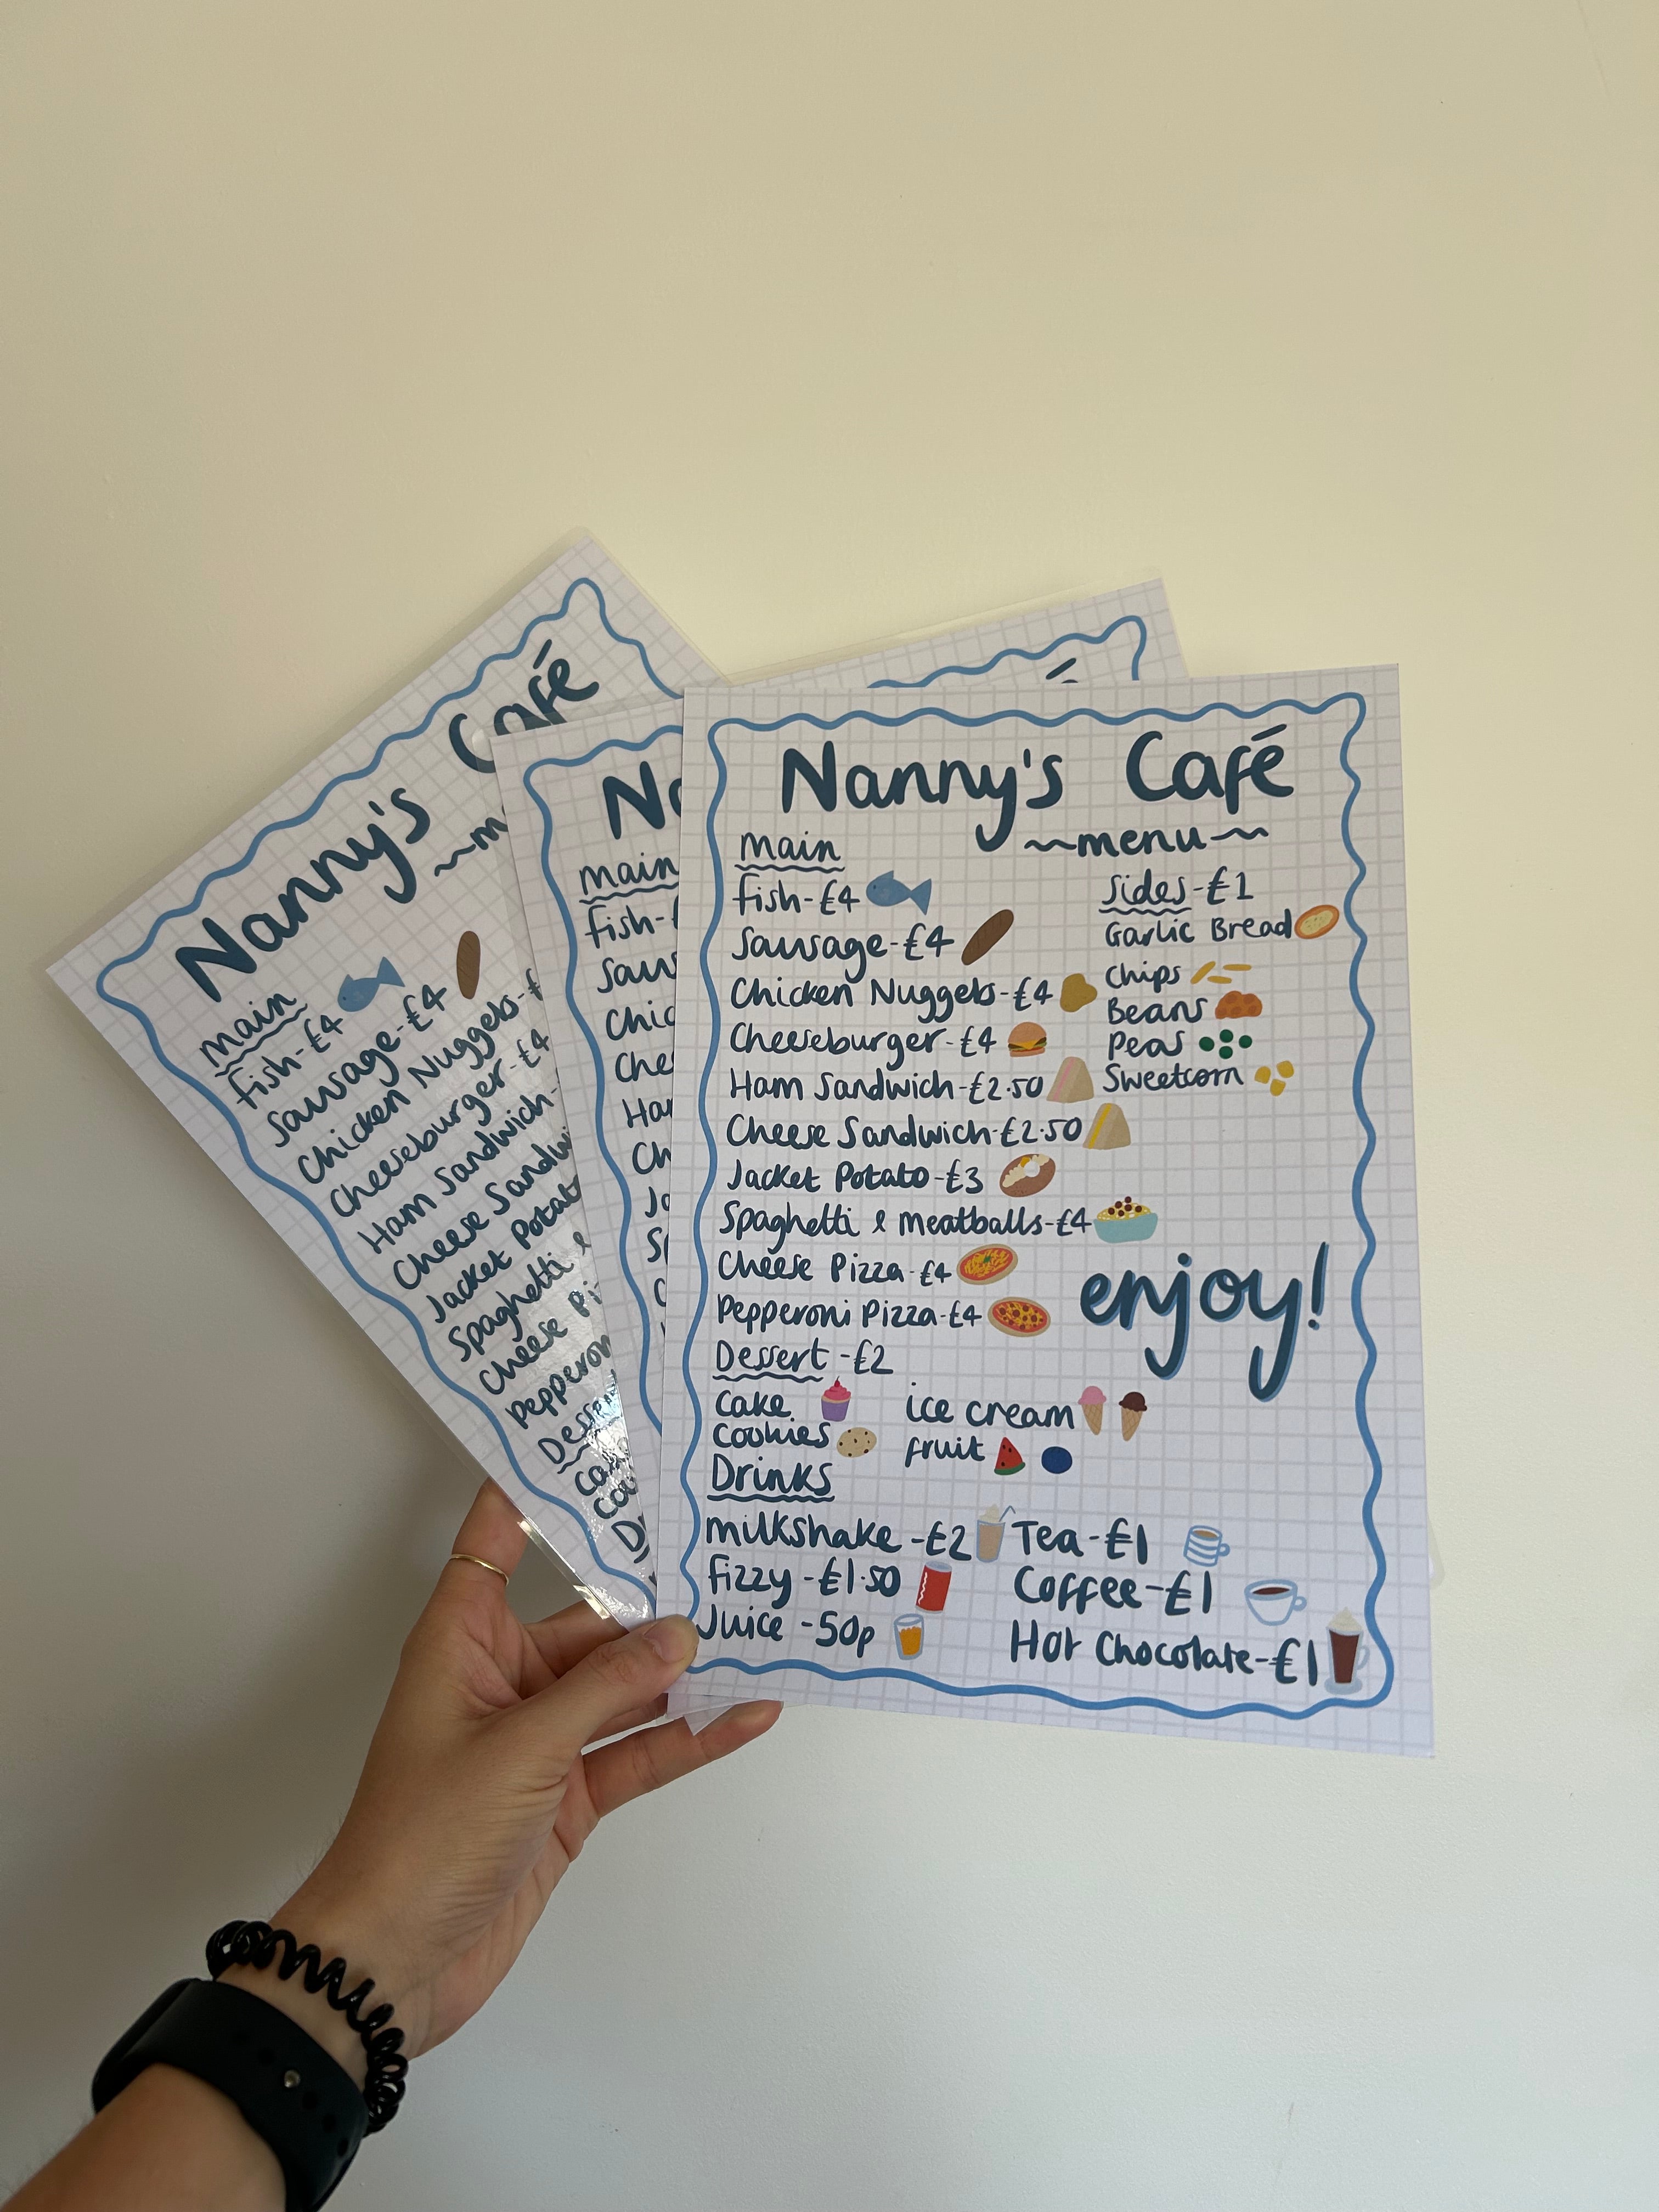 Nanny's Café
~menu~
Main
fish-£4
Sausage-£4
Chicken Nuggets-£4
Cheeseburger-£4
Ham Sandwich-£2.50
Cheese Sandwich-£2.50
Jacket Potato-£3
Spaghetti & meatballs-£4
Cheese Pizza-£4
Pepperoni Pizza-£4
Sides-£1
Garlic Bread
Chips
Beans
Peas
Sweetcorn
enjoy!
Dessert-£2
cake
cookies
ice cream
fruit
Drinks
milkshake-£2
fizzy-£1.50
Juice-50p
Tea-£1
Coffee-£1
Hot Chocolate-£1
Nanny's Café
Main
fish-£4
Sausage-£4
Chicken Nuggets-
Cheeseburger-£4
Ham Sandwich-
Cheese
Jacket
Spaghetti &
Cheese
Main
fish-